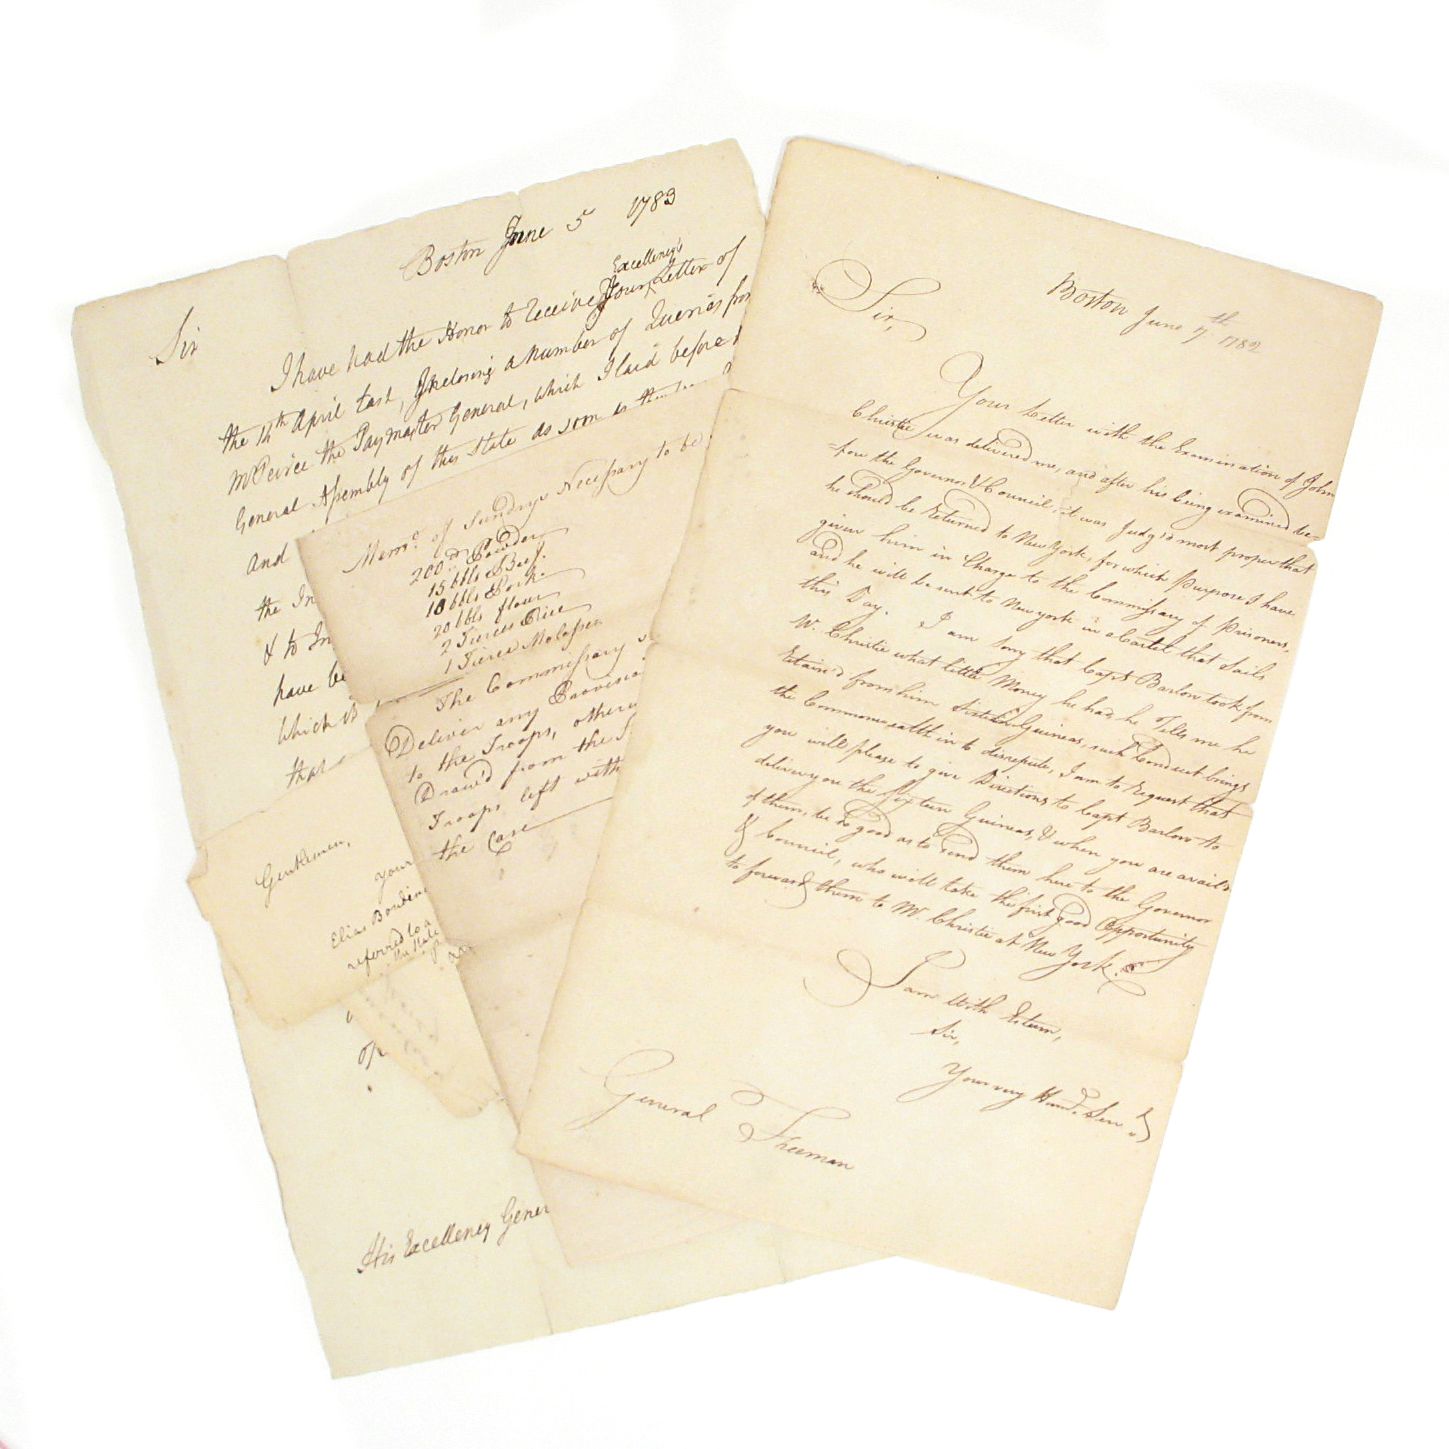 Boston June 5 1783
Sir
I have had the Honor to receive Your Excellency's Letter of
the 14th April last, Inclosing a Number of Queries from
Mr Peirce the Paymaster General, which I laid before
General Assembly of this State as soon as
and
the In
& to In
have be
which
that
His Excellency Gener
Memo. of Sundrys Necessary to be
200 lb Powder
15 bbls Beef.
18 bbls Pork
20 bbls flour
2 Tierces Rice
1 Tierce Molasses
The Commissary
Deliver any Provisi
to the Troops, other
Draw'd from the
Troops, left with
the Care
Gentlemen,
your
Elias Boudin
referred to a
the State
Boston June 7th 1782
Sir,
Your Letter with the Examination of John
Christie was delivered me, and after his being examined be-
fore the Governor & Council, it was Judg'd most proper that
he should be Returned to New York, for which Purpose I have
given him in Charge to the Commissary of Prisoners,
and he will be sent to New york in a Cartel that Sails
this Day. I am sorry that Capt Barlow took from
Mr. Christie what little Money he had, he Tells me he
retain'd from him Sixteen Guineas, such Conduct brings
the Commonwealth in to disrepute, I am to request that
you will please to give Directions to Capt Barlow to
deliver you the sixteen Guineas, & when you are avail'd
of them, be so good as to send them here to the Governor
& Council, who will take the first good Opportunity
to forward them to Mr Christie at New York.
I am With Esteem,
Sir,
Your very Humb. Serv.t
General Freeman